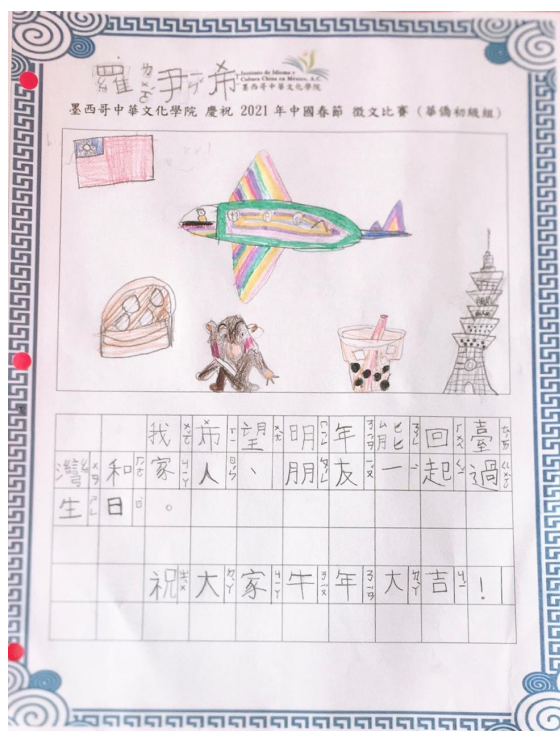 羅尹希
Instituto de Idioma y
Cultura China en México, A.C.
墨西哥中華文化學院
墨西哥中華文化學院 慶祝 2021 年中國春節 徵文比賽 (華僑初級組)
我希望明年能回臺
灣和家人、朋友一起過
生日。
祝大家牛年大吉!